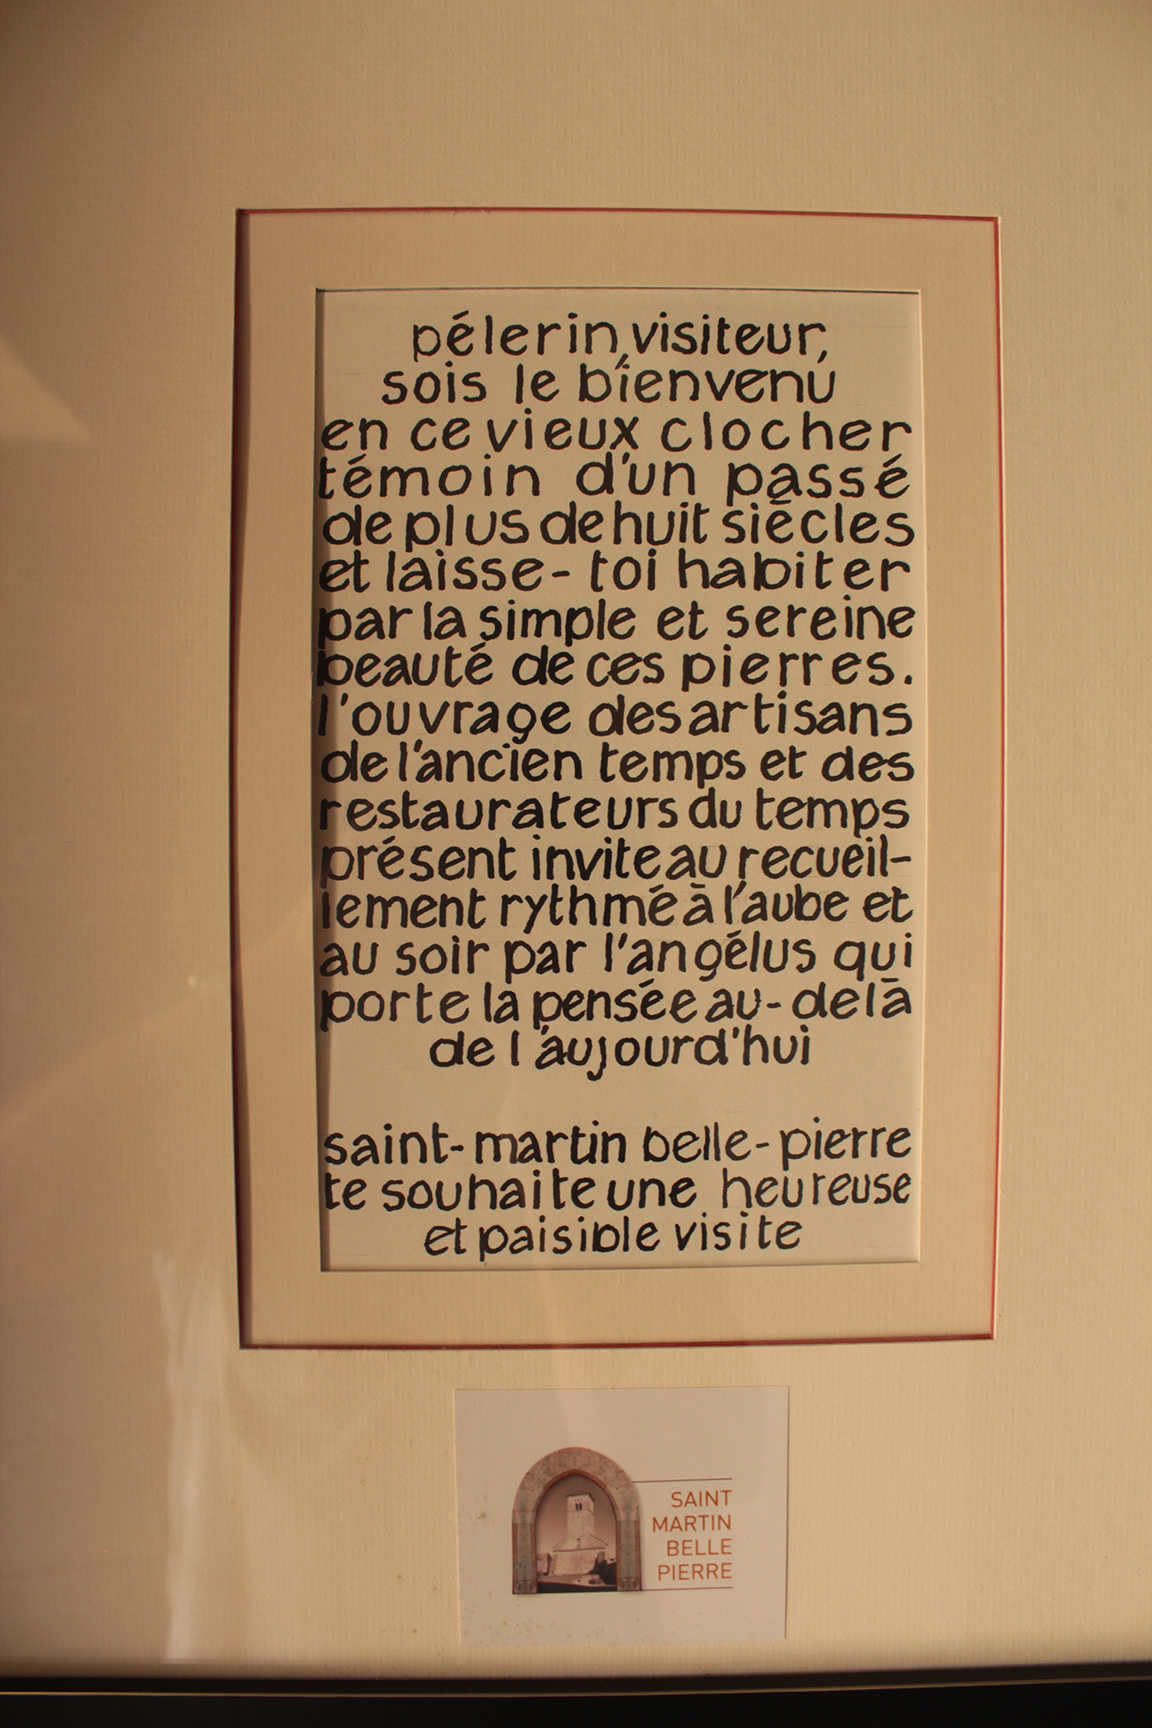 pélerin, visiteur,
sois le bienvenu
en ce vieux clocher
témoin d'un passé
de plus de huit siècles
et laisse-toi habiter
par la simple et sereine
beauté de ces pierres.
l'ouvrage des artisans
de l'ancien temps et des
restaurateurs du temps
présent invite au recueil-
lement rythmé à l'aube et
au soir par l'angélus qui
porte la pensée au-delà
de l'aujourd'hui
saint-martin belle-pierre
te souhaite une heureuse
et paisible visite
SAINT
MARTIN
BELLE
PIERRE